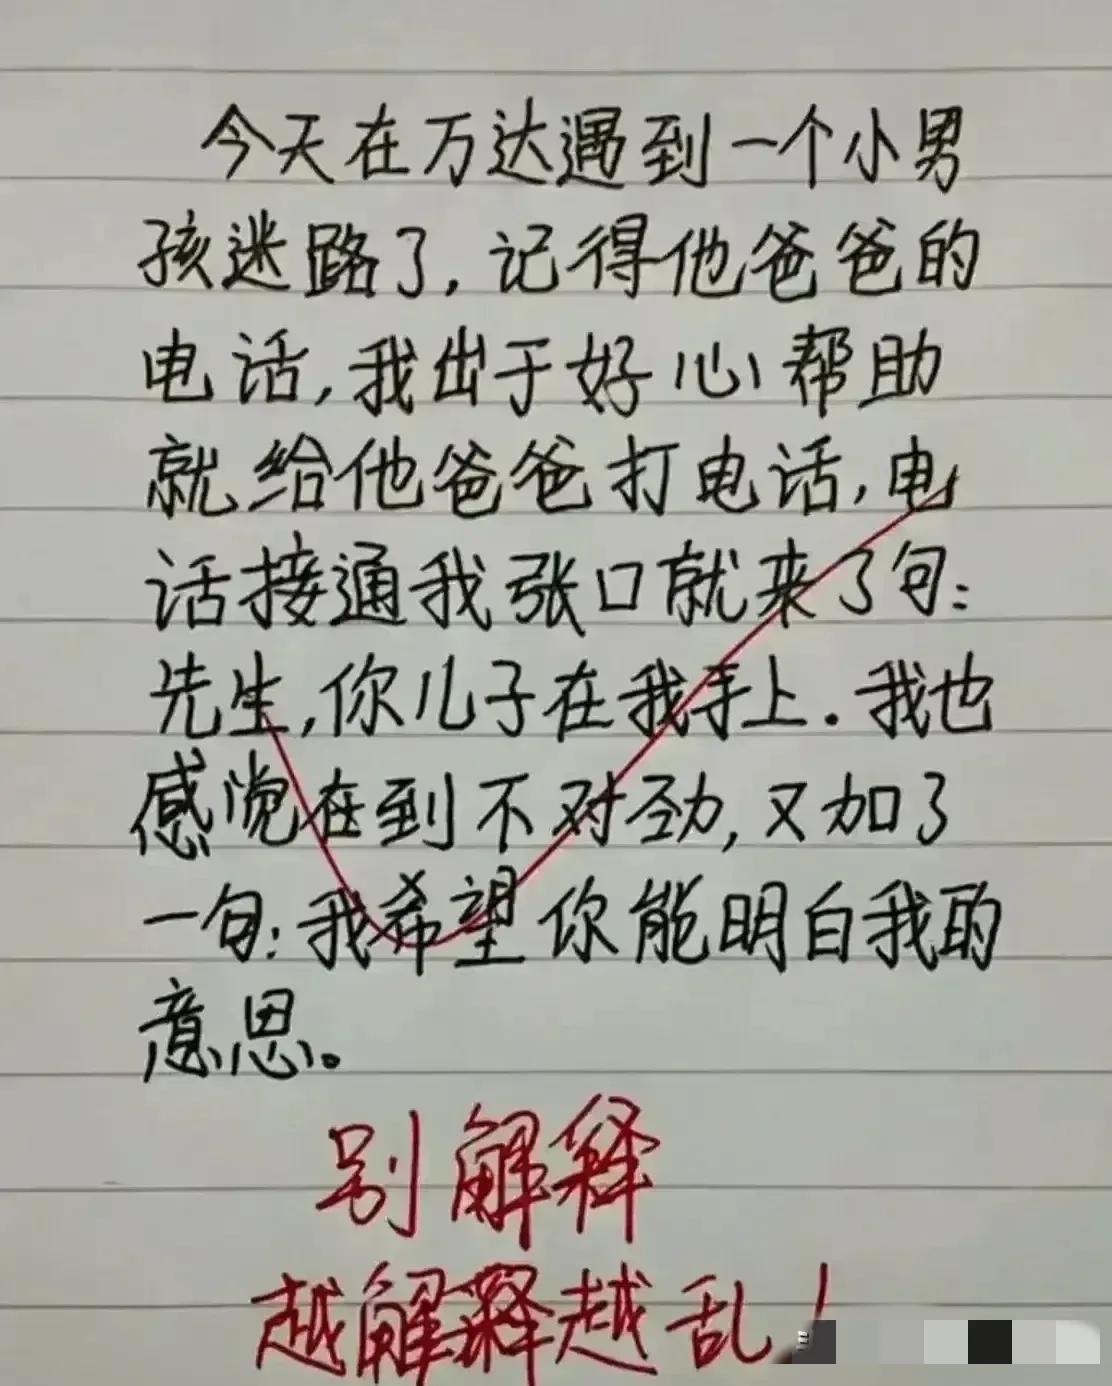 今天在万达遇到一个小男
孩迷路了,记得他爸爸的
电话,我出于好心帮助
就给他爸爸打电话,电
话接通我张口就来了句:
先生,你儿子在我手上.我也
感觉在到不对劲,又加了
一句:我希望你能明白我的
意思。
别解释
越解释越乱!